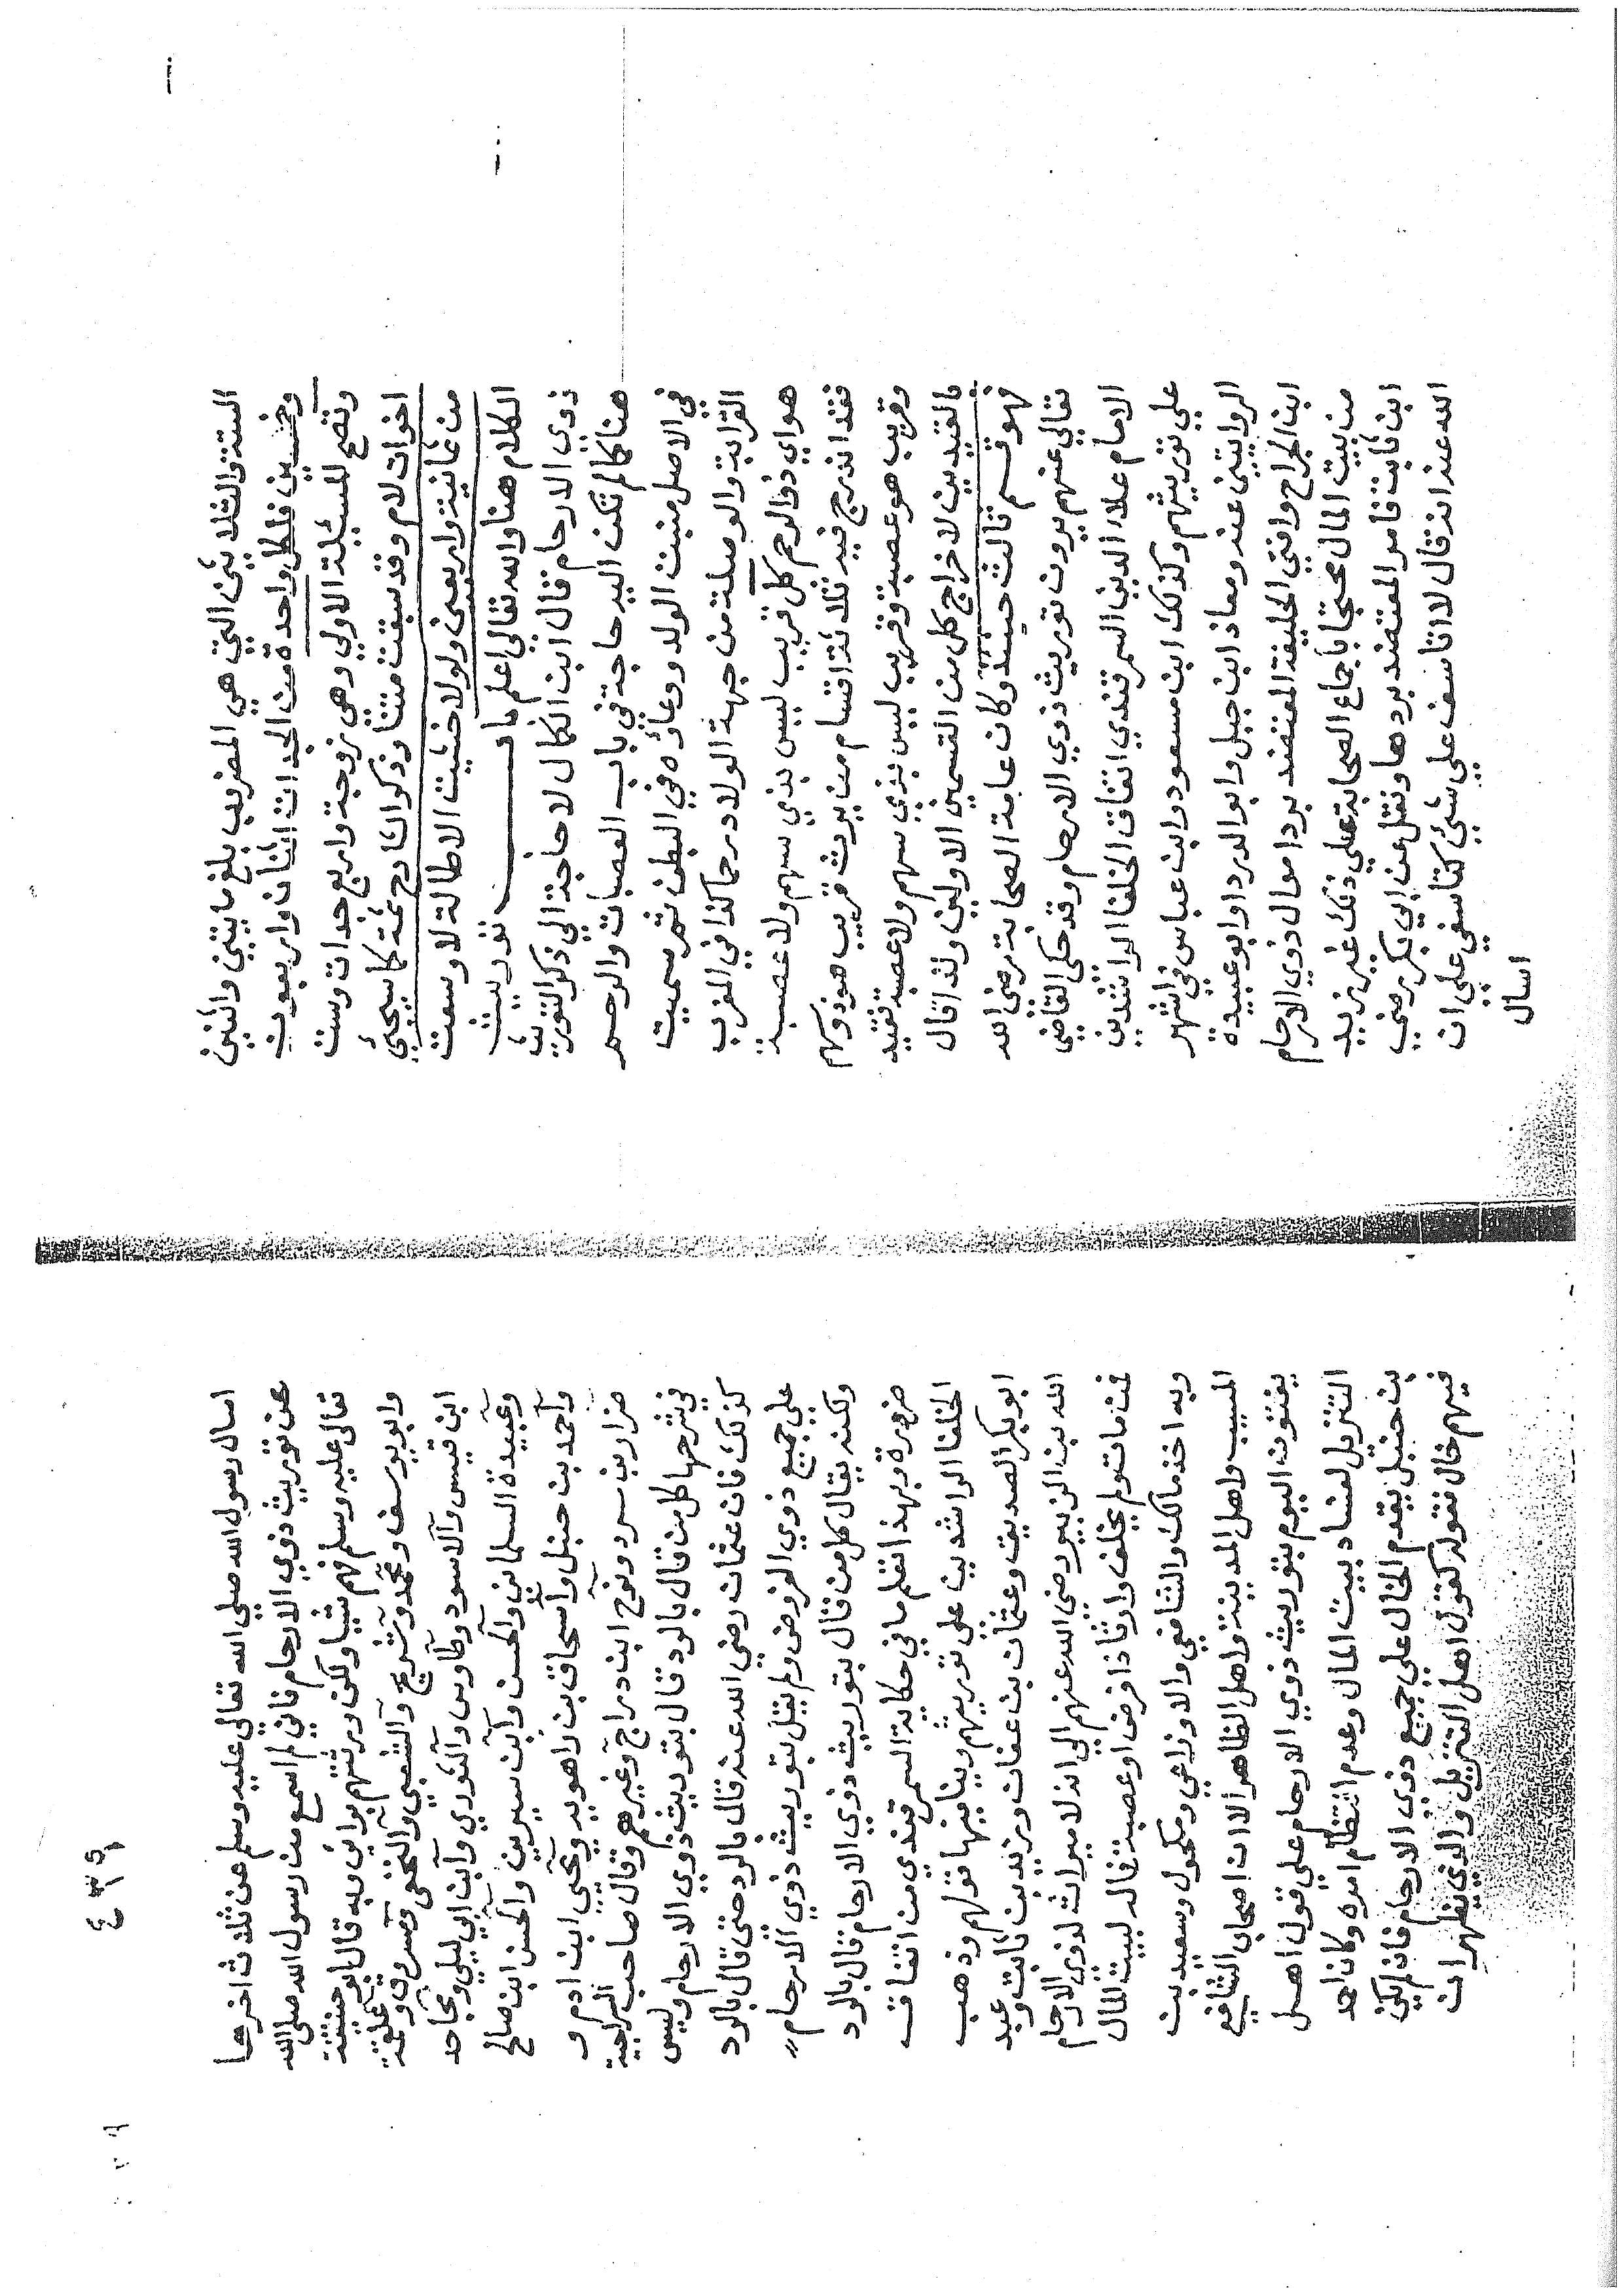 الستة والثلاثين التي هي المضروب بلغ مايتين واثنين
وخمسين فلكل واحدة من الجدات اثنان واربعون
وتصح للمسئلة الاولي وهي زوجة واربع جدات وست
اخوات لام وقد سبقت متنا وذكر الشارحة كما سيجيئ
من ثمانية واربعين ولولا خشيت الاطالة لاوسعت
الكلام هنا والله تعالي اعلم باب توريث
ذوي الارحام قال ابن الكمال لا حاجة الي ذكر التوريث
هنا كما لم تكن اليه حاجة في باب العصبات والرحم
في الاصل منبت الولد ووعاؤه في البطن ثم سميت
القرابة والوصلة من جهة الولاد رحما كذا في المغرب
هو اي ذو الرحم كل قريب ليس بذي سهم ولا عصبة
فقد اندرج فيه ثلاثة اقسام من يرث قريب هو ذو سهم
وقريب هو عصبة وقريب ليس بذي سهم ولا عصبة فقيد
بالقيدين لاخراج كل من القسمين الاولين ولذا قال
فهو قسم ثالث حينئذ وكان عامة الصحابة رضي الله
تعالي عنهم يرون توريث ذوي الارحام وقد حكي القاضي
الامام علاء الدين السمرقندي اتفاق الخلفا الراشدين
علي توريثهم وكذلك ابن مسعود وابن عباس في اشهر
الروايتين عنه ومعاذ ابن جبل وابو الدردا وابو عبيدة
ابن الجراح وافتي الخليفة المعتضد برد اموال ذوي الارحام
من بيت المال محتجا باجماع الصحابة علي ذلك غير زيد
ابن ثابت فامر المعتضد بردها ونقل عن ابي بكر رضي
الله عنه انه قال لا اتاسف علي شيئ كتاسفي علي ان
اسال
٤٣٩
اسال رسول الله صلي الله تعالي عليه وسلم عن ثلاث اخرها
عن توريث ذوي الارحام فاني لم اسمع من رسول الله صلي الله
تعالي عليه وسلم فهم شيا ولكن ورثتهم برائي وبه قال ابو حنيفة
وابو يوسف ومحمد وشريح والشعبي والنخعي ومسروق وعلقمة
ابن قيس والاسود وطاوس والثوري وابن ابي ليلي ومجاهد
وعبيدة السلماني والحسن وابن سيرين والحسن ابن صالح
واحمد بن حنبل واسحاق بن راهويه ويحيي ابن ادم و
ضرار بن سرد ونوح ابن دراج وغيرهم وقال صاحب السراجية
في شرحها كل من قال بالرد قال بتوريث ذوي الارحام وليس
كذلك فان عثمان رضي الله عنه قال بالرد حتي قال بالرد
علي جميع ذوي الفروض ولم يقل بتوريث ذوي الارحام
ولكنه يقال كل من قال بتوريث ذوي الارحام قال بالرد
ضرورة وبهذا تعلم ما في حكاية السمرقندي من اتفاق
الخلفا الراشدين علي توريثهم وينا فيها قولهم وذهب
ابو بكر الصديق وعثمان بن عفان وزيد بن ثابت وعبد
الله بن الزبير رضي الله عنهم الي انه لا ميراث لذوي الارحام
فمن مات ولم يخلف وارثا ذا فرض او عصبة فماله لبيت المال
وبه اخذ مالك والشافعي والاوزاعي ومكحول وسعيد بن
المسيب واهل المدينة واهل الظاهر الا ان اصحاب الشافعي
يفتون اليوم بتوريث ذوي الارحام علي قول اهل
التنزيل لفساد بيت المال وعدم انتظام امره وكان احمد
بن حنبل يقدم الخال علي جميع ذوي الارحام فان لم يكن
فيهم خال فقوله كقول اهل التنزيل والذي يظهر ان